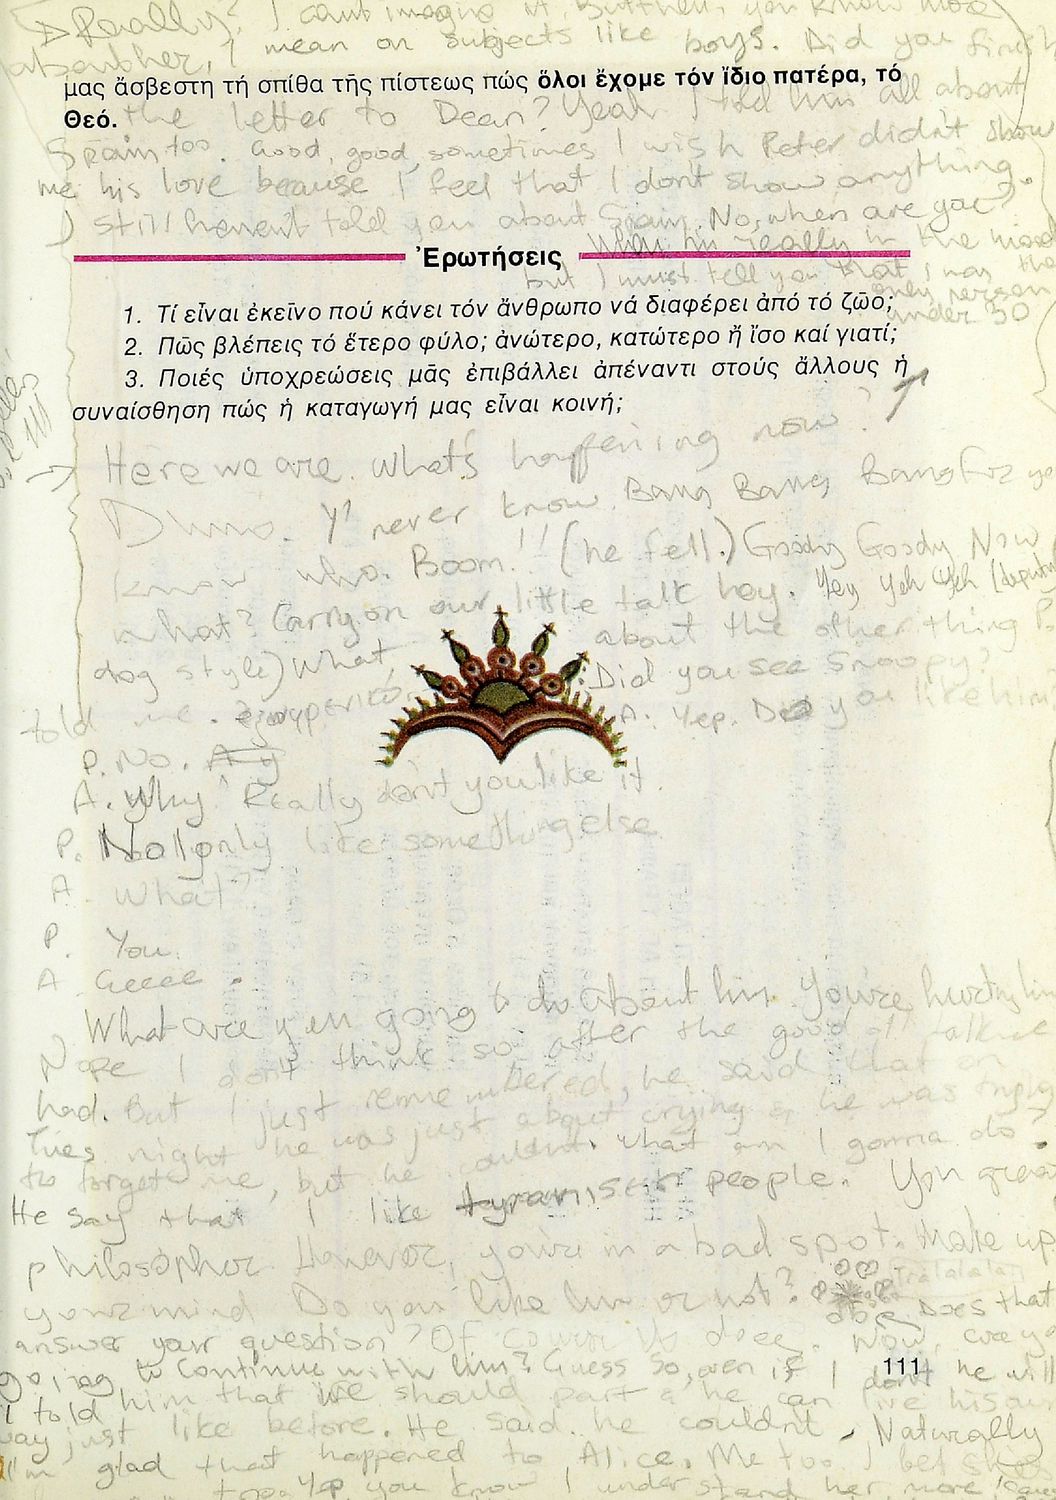 Really? I can't imagine it. But then, you know more
about her, I mean on subjects like boys. Did you finish
μας ἄσβεστη τή σπίθα τῆς πίστεως πώς ὅλοι ἔχομε τόν ἴδιο πατέρα, τό
Θεό.
the letter to Dean? Yeah I told him all about
Spain too. Good, good, sometimes I wish Peter didn't show
me his love because I feel that I don't show anything.
I still haven't told you about Spain. No, when are you?
When I'm really in the mood
Ἐρωτήσεις
but I must tell you that I was the
only person
under 30
1. Τί εἶναι ἐκεῖνο πού κάνει τόν ἄνθρωπο νά διαφέρει ἀπό τό ζῶο;
2. Πῶς βλέπεις τό ἕτερο φύλο; ἀνώτερο, κατώτερο ἤ ἴσο καί γιατί;
3. Ποιές ὑποχρεώσεις μᾶς ἐπιβάλλει ἀπέναντι στούς ἄλλους ἡ
συναίσθηση πώς ἡ καταγωγή μας εἶναι κοινή;
Here we are. What's happening now?
Dunno. Y' never know. Bang Bang Bang
know who. Boom!! (he fell.) Goody Goody Now
what? Carry on our little talk hey. Yey Yeh Yeh
dog style) What about the other thing P.
told me. Did you see Snoopy?
A: Yep. Do you like him
P. No.
A. Why? Really don't you like it.
P. No I only like something else
A. What?
P. You.
A. Geeee.
What are you going to do about him. You're hurting him
Nope I don't think so after the good ol' talk we
had. But I just remembered, he said that on
Tues night he was just about crying & he was trying
to forget me, but he couldn't. What am I gonna do?
He say that I like people. You great
philosopher. However, you're in a bad spot. Make up
your mind Do you like him or not? Tralalalala
Does that
answer your question? Of course it does. Now, are you
going to continue with him? Guess so, even if I don't he will
111
I told him that we should part & he can live his own
way just like before. He said he couldn't, Naturally
I'm glad that happened to Alice. Me too I bet she's
too. Yep, you know I understand her more